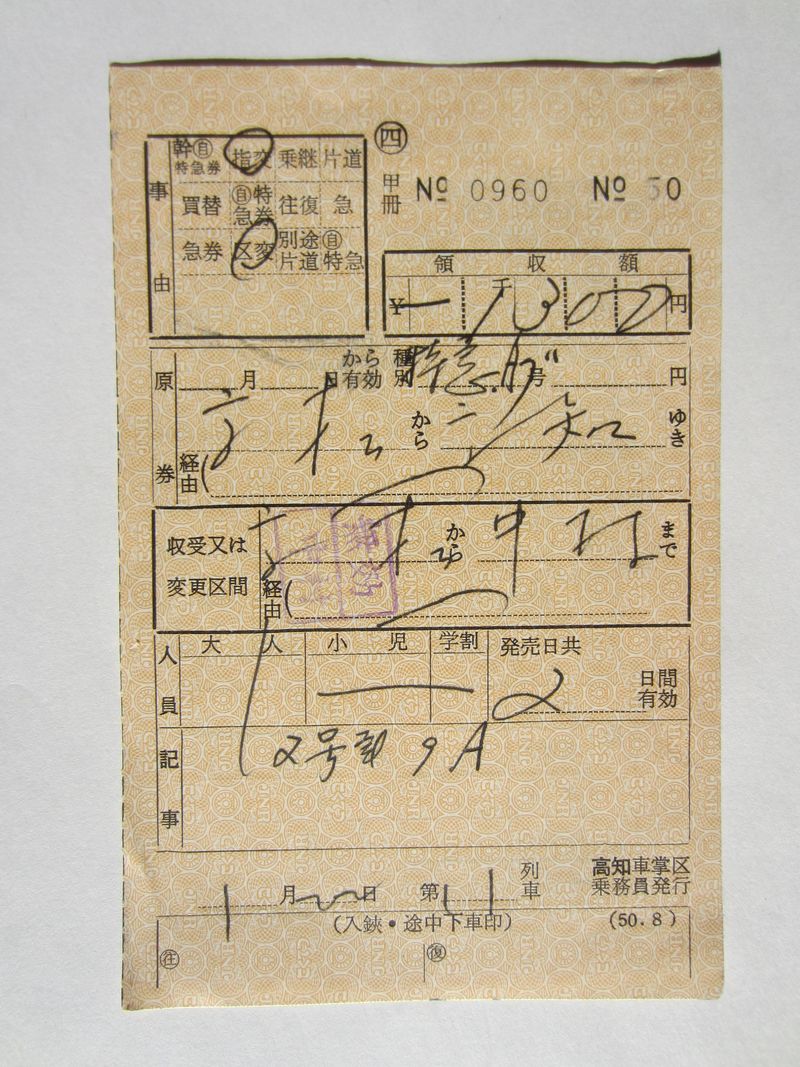 四
甲冊 № 0960 № 50
事由
幹自特急券 指変 乗継 片道
買替 自特急券 往復 急
急券 区変 別途片道 自特急
領収額
¥ 一 千 1300 円
原券 月 日 から有効 種別 特急 号 円
高松 から 高知 ゆき
経由
収受又は変更区間 高松 から 中村 まで
経由
無効
人員 大人 小児 学割 発売日共
1 2 日間有効
記事 2号車 9A
1月 日 第 11 列車 高知車掌区乗務員発行
(入鋏・途中下車印) (50.8)
往 復